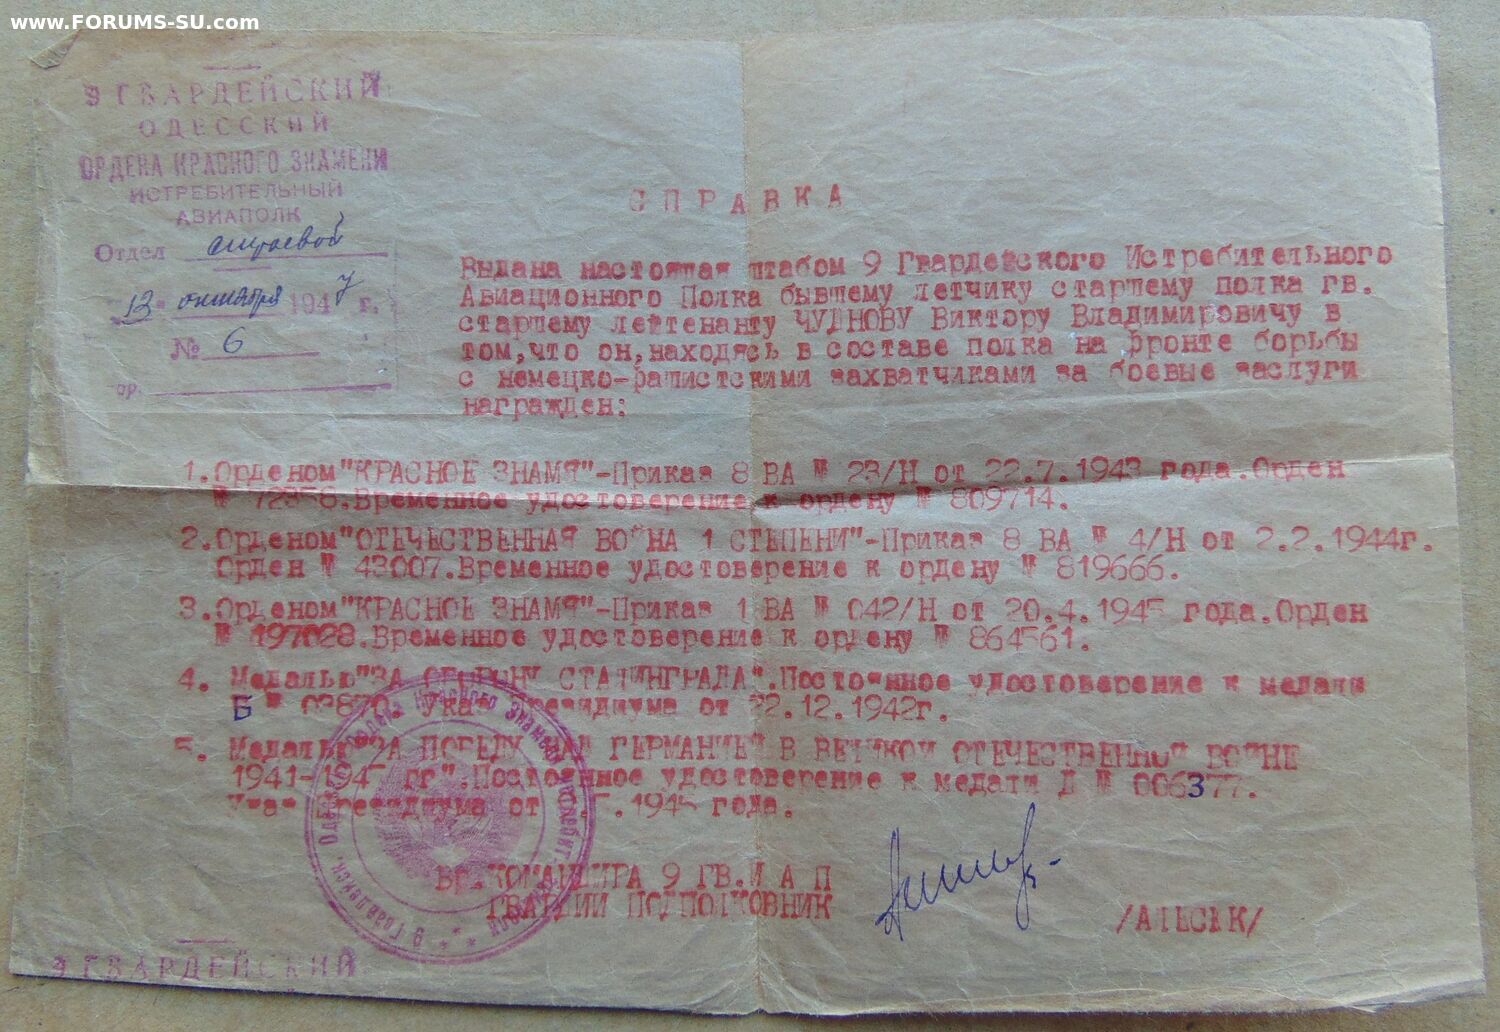 www.FORUMS-SU.com
9 ГВАРДЕЙСКИЙ
ОДЕССКИЙ
ОРДЕНА КРАСНОГО ЗНАМЕНИ
ИСТРЕБИТЕЛЬНЫЙ
АВИАПОЛК
Отдел строевой
13 октября 1947 г.
№ 6
гор.
СПРАВКА
Выдана настоящая штабом 9 Гвардейского Истребительного
Авиационного Полка бывшему летчику старшему полка гв.
старшему лейтенанту ЧУДНОВУ Виктору Владимировичу в
том,что он,находясь в составе полка на фронте борьбы
с немецко-фашистскими захватчиками за боевые заслуги
награжден:
1.Орденом"КРАСНОЕ ЗНАМЯ"-Приказ 8 ВА № 23/Н от 22.7.1943 года.Орден
№ Временное удостоверение к ордену № 809714.
2.Орденом"ОТЕЧЕСТВЕННАЯ ВОЙНА 1 СТЕПЕНИ"-Приказ 8 ВА № 4/Н от 2.2.1944г.
Орден № 43007.Временное удостоверение к ордену № 819666.
3.Орденом"КРАСНОЕ ЗНАМЯ"-Приказ 1 ВА № 042/Н от 20.4.1945 года.Орден
№ 197028.Временное удостоверение к ордену № 864561.
4. Медалью"ЗА ОБОРОНУ СТАЛИНГРАДА".Постоянное удостоверение к медали
Б № 03870. Указ Президиума от 22.12.1942г.
5. Медалью"ЗА ПОБЕДУ НАД ГЕРМАНИЕЙ В ВЕЛИКОЙ ОТЕЧЕСТВЕННОЙ ВОЙНЕ
1941-1945 гг".Постоянное удостоверение к медали Д № 006377.
Указ Президиума от 1945 года.
ВР.КОМАНДИРА 9 ГВ.И А П
ГВАРДИИ ПОДПОЛКОВНИК
/АЛЕСЮК/
9 Гвардейск. Одесский Ордена Красного Знамени Истребит.
9 ГВАРДЕЙСКИЙ